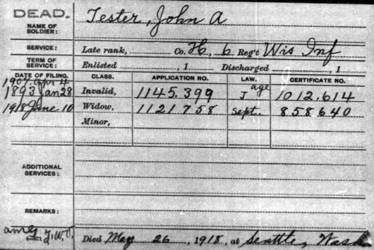 DEAD.
NAME OF SOLDIER: Tester, John A
SERVICE: Late rank, Co. H, 6 Reg't Wis Inf
TERM OF SERVICE: Enlisted , 1 Discharged , 1
DATE OF FILING. CLASS. APPLICATION NO. LAW. CERTIFICATE NO.
1907 4 age
1893 Jan 28 Invalid, 1145.399 J 1012.614
1918 June 10 Widow, 1121758 Sept. 858640
Minor,
ADDITIONAL SERVICES:
REMARKS:
Died May 26, 1918, at Seattle, Wash